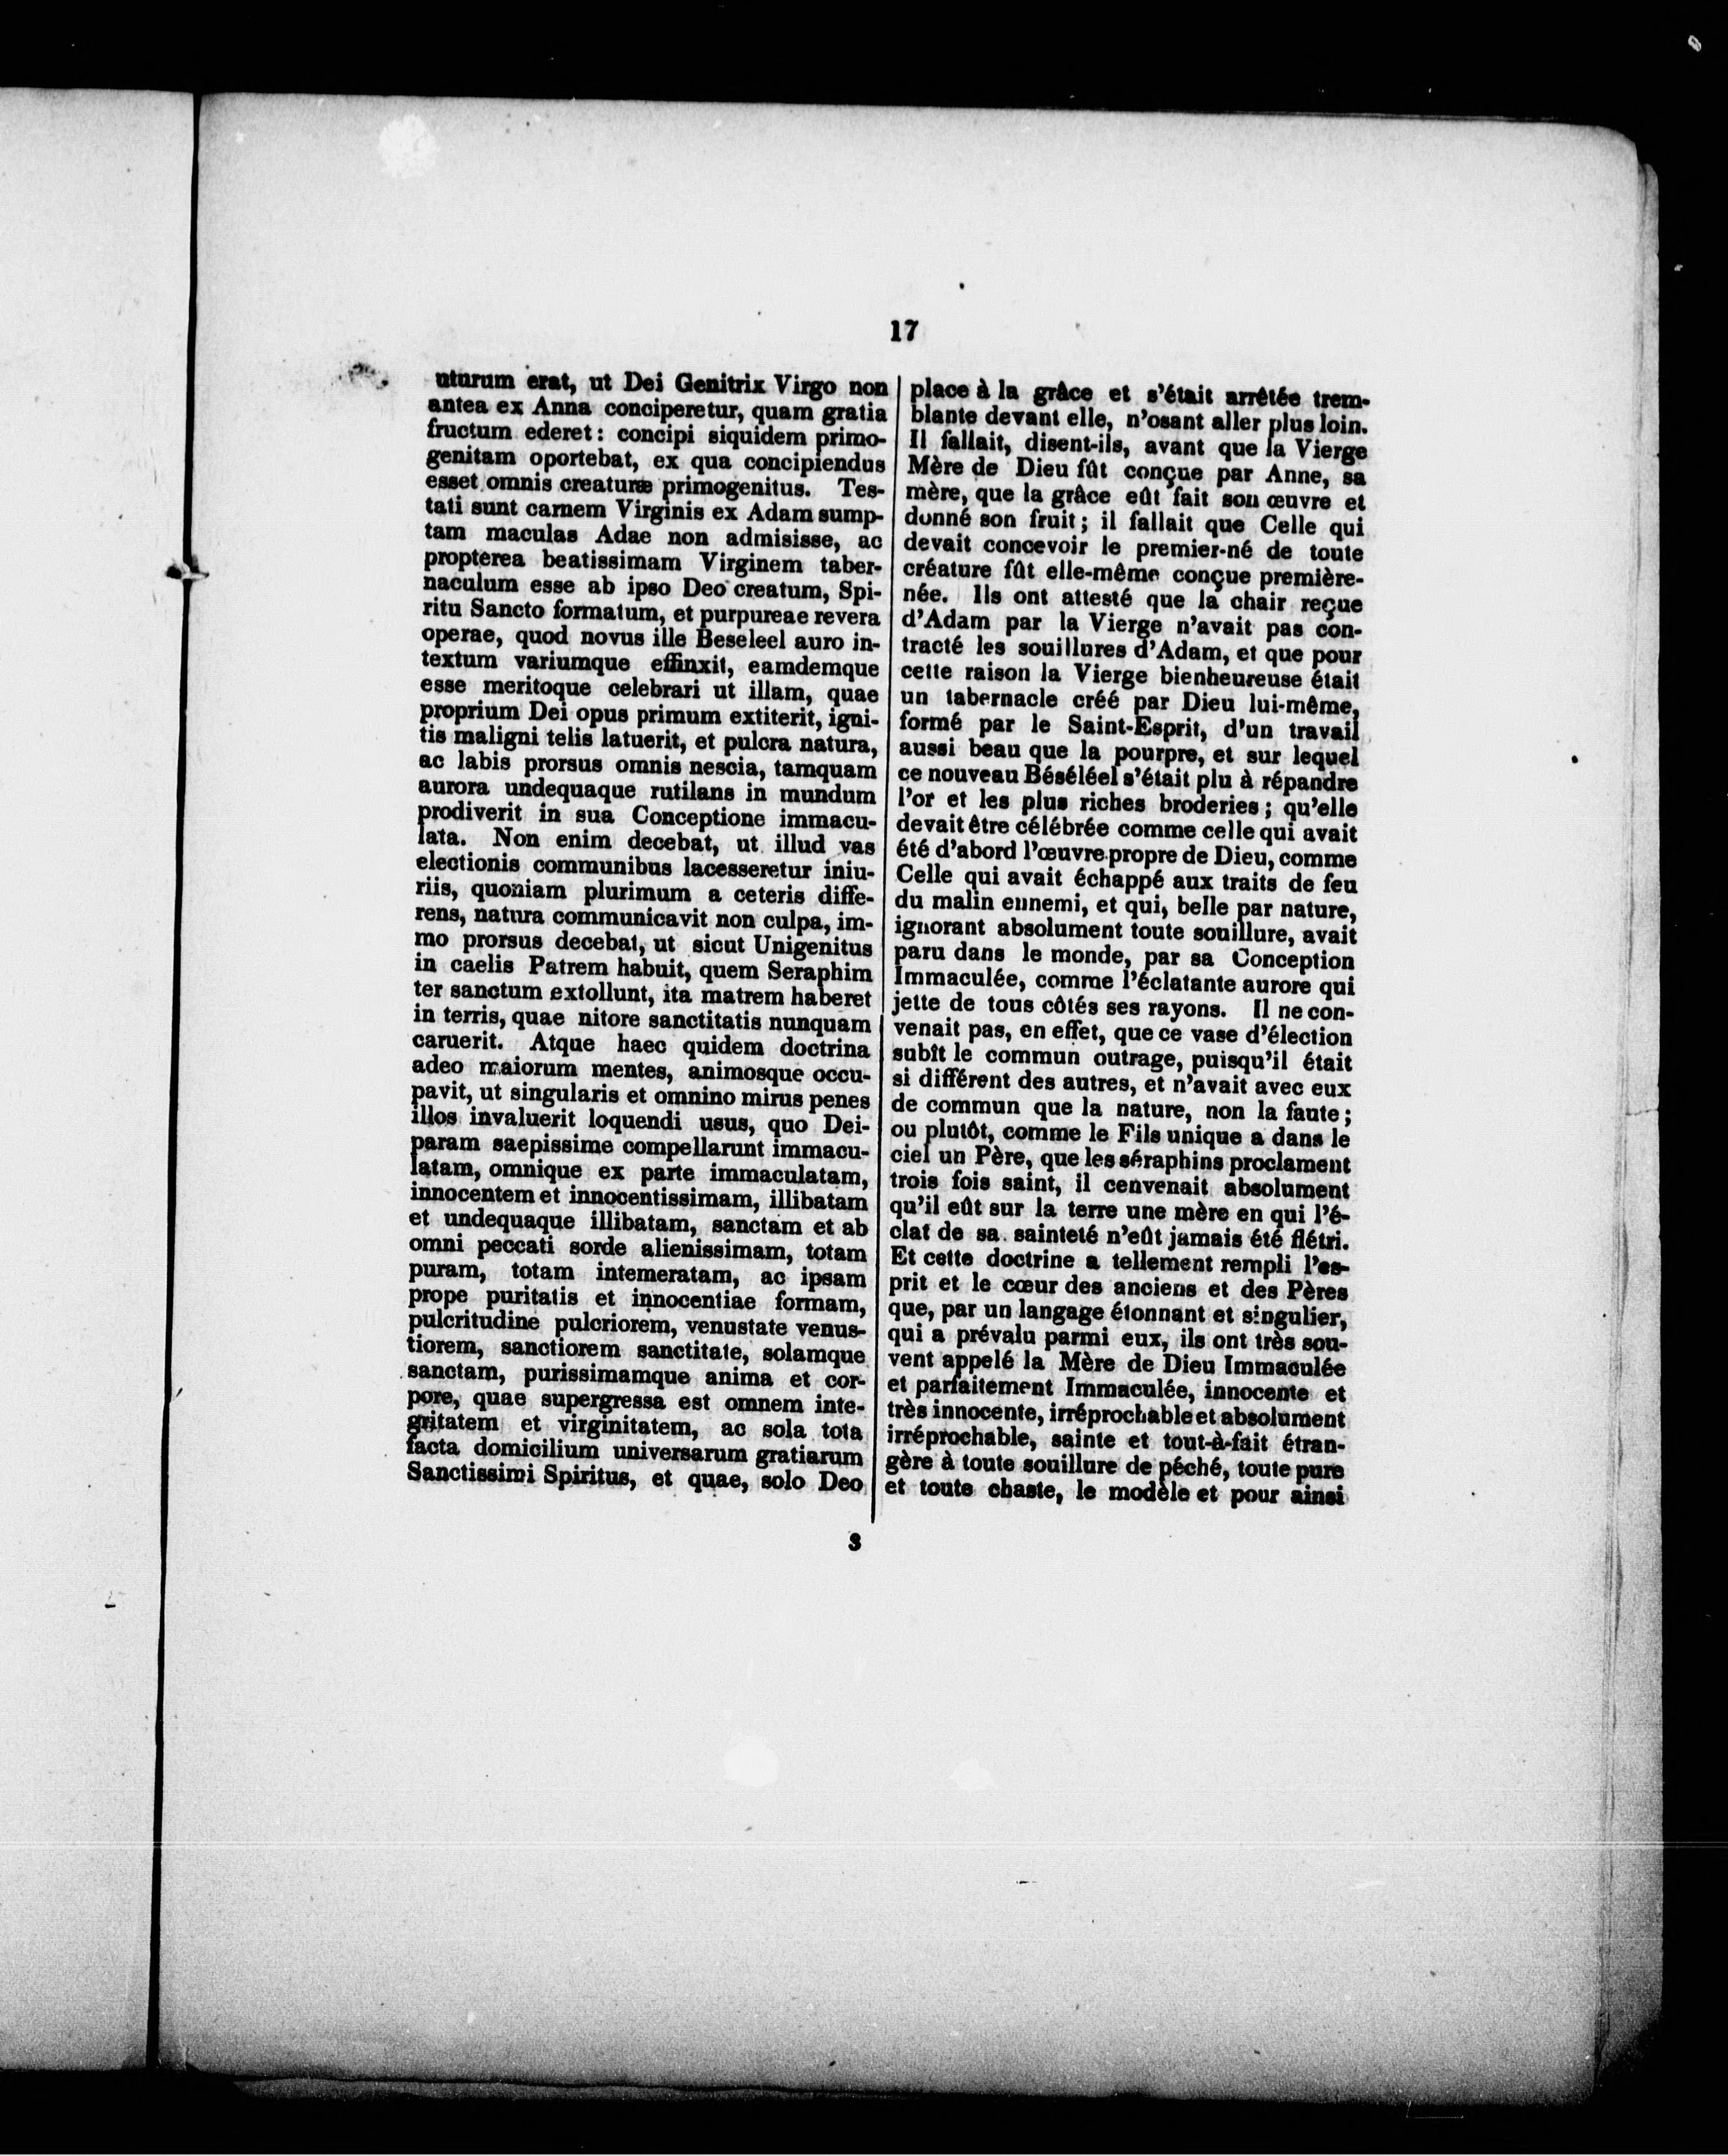 17
uturum erat, ut Dei Genitrix Virgo non
antea ex Anna conciperetur, quam gratia
fructum ederet: concipi siquidem primo-
genitam oportebat, ex qua concipiendus
esset omnis creaturæ primogenitus. Tes-
tati sunt carnem Virginis ex Adam sump-
tam maculas Adae non admisisse, ac
propterea beatissimam Virginem taber-
naculum esse ab ipso Deo creatum, Spi-
ritu Sancto formatum, et purpureae revera
operae, quod novus ille Beseleel auro in-
textum variumque effinxit, eamdemque
esse meritoque celebrari ut illam, quae
proprium Dei opus primum extiterit, igni-
tis maligni telis latuerit, et pulcra natura,
ac labis prorsus omnis nescia, tamquam
aurora undequaque rutilans in mundum
prodiverit in sua Conceptione immacu-
lata. Non enim decebat, ut illud vas
electionis communibus lacesseretur iniu-
riis, quoniam plurimum a ceteris diffe-
rens, natura communicavit non culpa, im-
mo prorsus decebat, ut sicut Unigenitus
in caelis Patrem habuit, quem Seraphim
ter sanctum extollunt, ita matrem haberet
in terris, quae nitore sanctitatis nunquam
caruerit. Atque haec quidem doctrina
adeo maiorum mentes, animosque occu-
pavit, ut singularis et omnino mirus penes
illos invaluerit loquendi usus, quo Dei-
param saepissime compellarunt immacu-
latam, omnique ex parte immaculatam,
innocentem et innocentissimam, illibatam
et undequaque illibatam, sanctam et ab
omni peccati sorde alienissimam, totam
puram, totam intemeratam, ac ipsam
prope puritatis et innocentiae formam,
pulcritudine pulcriorem, venustate venus-
tiorem, sanctiorem sanctitate, solamque
sanctam, purissimamque anima et cor-
pore, quae supergressa est omnem inte-
gritatem et virginitatem, ac sola tota
facta domicilium universarum gratiarum
Sanctissimi Spiritus, et quae, solo Deo
place à la grâce et s'était arrêtée trem-
blante devant elle, n'osant aller plus loin.
Il fallait, disent-ils, avant que la Vierge
Mère de Dieu fût conçue par Anne, sa
mère, que la grâce eût fait son œuvre et
donné son fruit; il fallait que Celle qui
devait concevoir le premier-né de toute
créature fût elle-même conçue première-
née. Ils ont attesté que la chair reçue
d'Adam par la Vierge n'avait pas con-
tracté les souillures d'Adam, et que pour
cette raison la Vierge bienheureuse était
un tabernacle créé par Dieu lui-même,
formé par le Saint-Esprit, d'un travail
aussi beau que la pourpre, et sur lequel
ce nouveau Béséléel s'était plu à répandre
l'or et les plus riches broderies; qu'elle
devait être célébrée comme celle qui avait
été d'abord l'œuvre propre de Dieu, comme
Celle qui avait échappé aux traits de feu
du malin ennemi, et qui, belle par nature,
ignorant absolument toute souillure, avait
paru dans le monde, par sa Conception
Immaculée, comme l'éclatante aurore qui
jette de tous côtés ses rayons. Il ne con-
venait pas, en effet, que ce vase d'élection
subît le commun outrage, puisqu'il était
si différent des autres, et n'avait avec eux
de commun que la nature, non la faute;
ou plutôt, comme le Fils unique a dans le
ciel un Père, que les séraphins proclament
trois fois saint, il cenvenait absolument
qu'il eût sur la terre une mère en qui l'é-
clat de sa sainteté n'eût jamais été flétri.
Et cette doctrine a tellement rempli l'es-
prit et le cœur des anciens et des Pères
que, par un langage étonnant et singulier,
qui a prévalu parmi eux, ils ont très sou-
vent appelé la Mère de Dieu Immaculée
et parfaitement Immaculée, innocente et
très innocente, irréprochable et absolument
irréprochable, sainte et tout-à-fait étran-
gère à toute souillure de péché, toute pure
et toute chaste, le modèle et pour ainsi
3